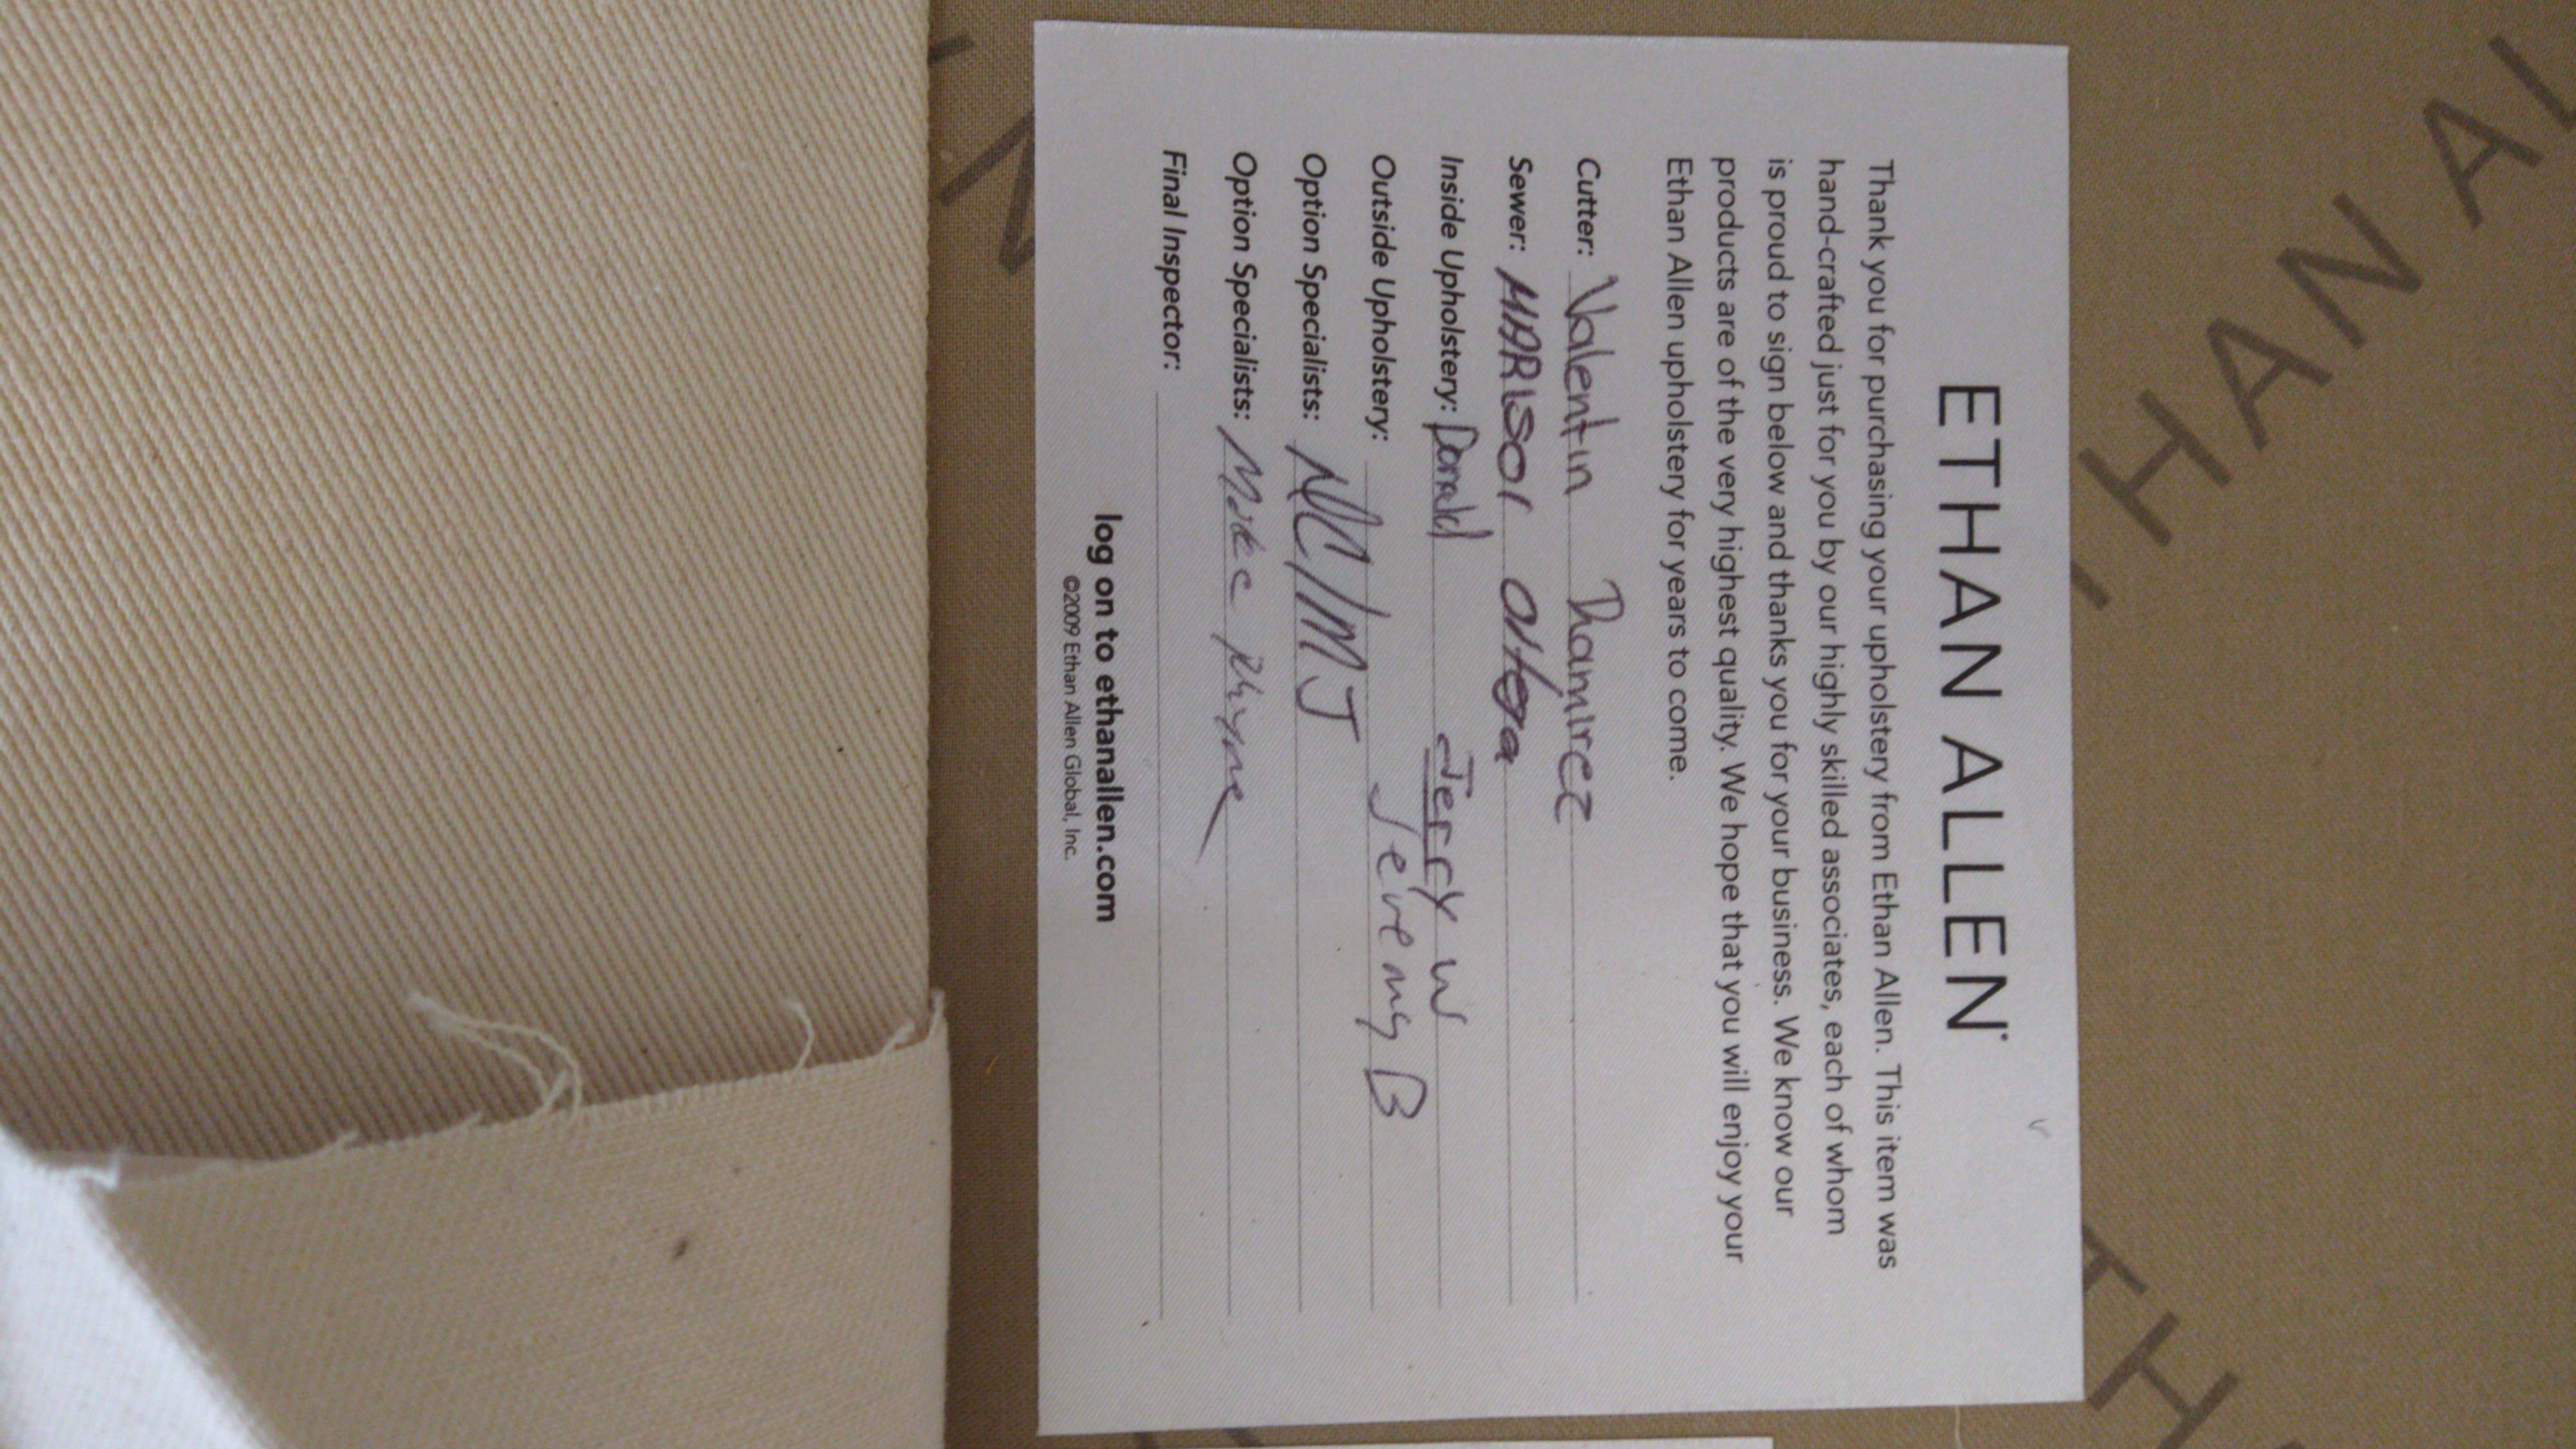 ETHAN ALLEN
Thank you for purchasing your upholstery from Ethan Allen. This item was
hand-crafted just for you by our highly skilled associates, each of whom
is proud to sign below and thanks you for your business. We know our
products are of the very highest quality. We hope that you will enjoy your
Ethan Allen upholstery for years to come.
Cutter: Valentin Ramirez
Sewer: MARISOl
Inside Upholstery: Donald Jerry W
Outside Upholstery: Jeremy B
Option Specialists: NC/MJ
Option Specialists: Mike Rhyne
Final Inspector:
log on to ethanallen.com
©2009 Ethan Allen Global, Inc.
HAN AL
TH